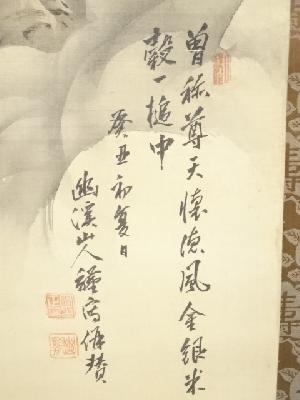 曽称尊天懐徳風金銀米
穀一槌中
癸丑初夏日
幽溪山人謹写併賛